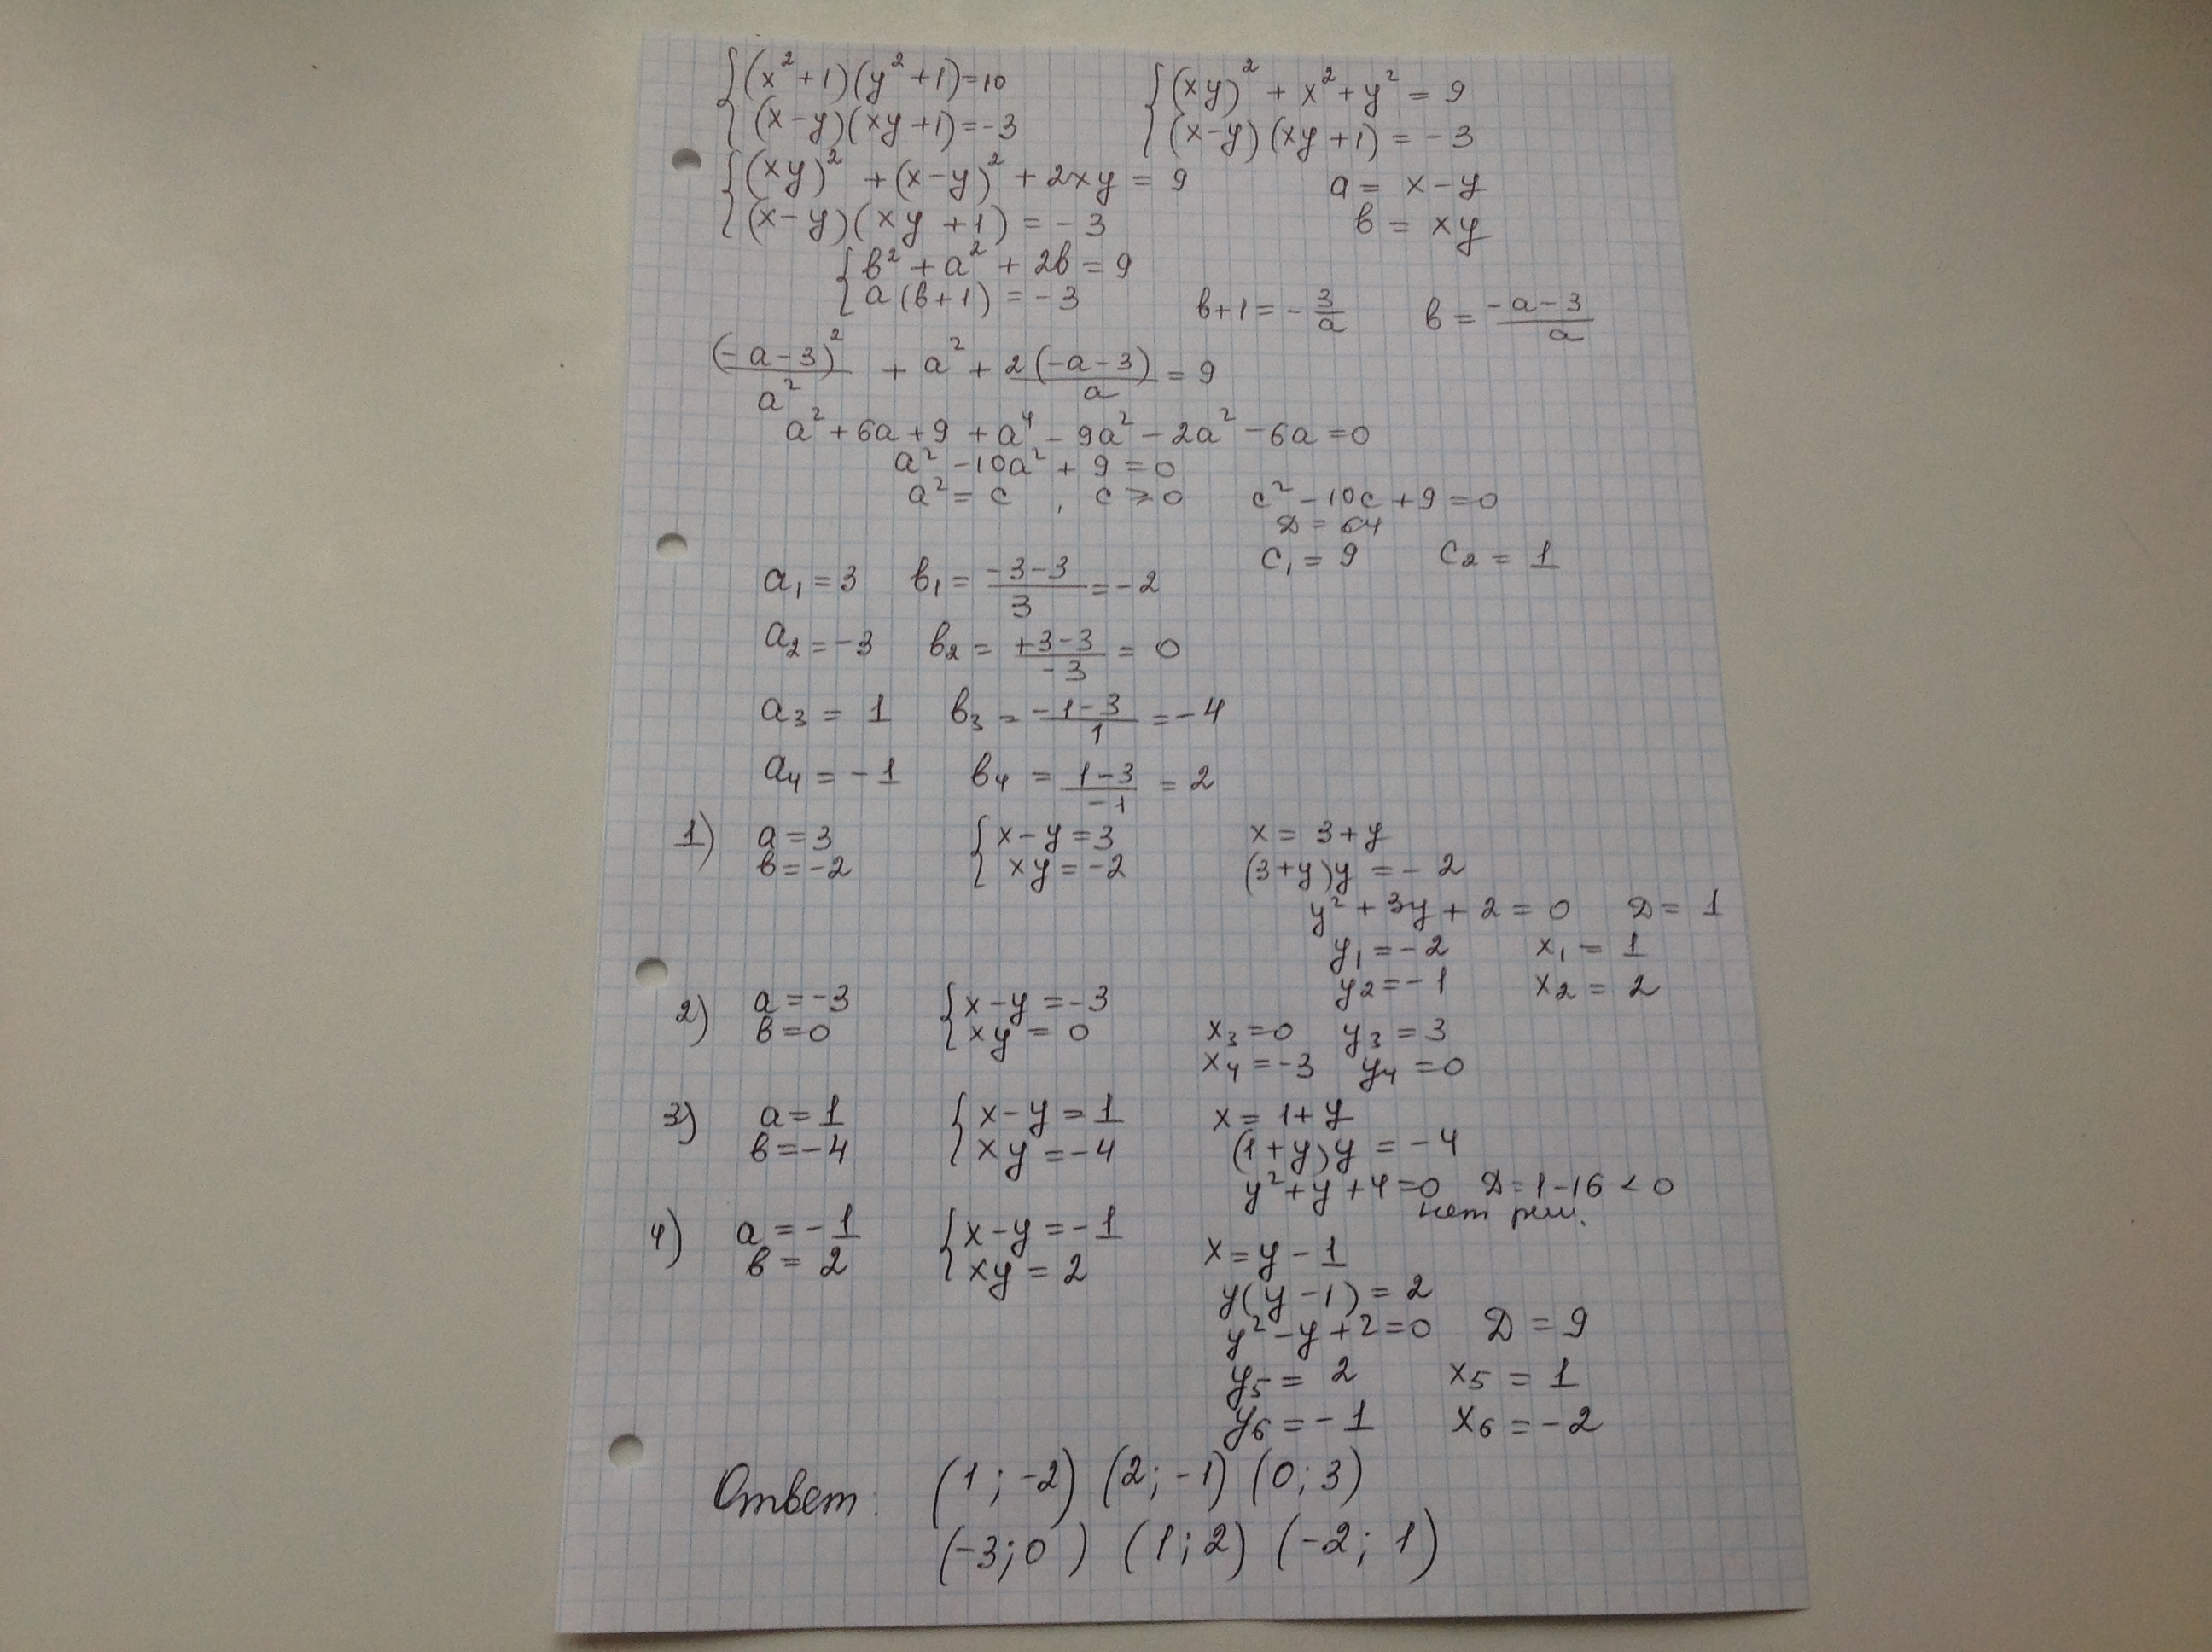 {(x²+1)(y²+1)=10 {(xy)²+x²+y²=9
{(x-y)(xy+1)=-3 {(x-y)(xy+1)=-3
{(xy)²+(x-y)²+2xy=9 a=x-y
{(x-y)(xy+1)=-3 в=xy
{в²+a²+2в=9
{a(в+1)=-3 в+1=-3/a в=(-a-3)/a
(-a-3)²/a² + a² + 2(-a-3)/a = 9
a²+6a+9+a⁴-9a²-2a²-6a=0
a²-10a²+9=0
a²=c, c≥0 c²-10c+9=0
D=64
c₁=9 c₂=1
a₁=3 в₁=(-3-3)/3=-2
a₂=-3 в₂=(+3-3)/-3=0
a₃=1 в₃=(-1-3)/1=-4
a₄=-1 в₄=(1-3)/-1=2
1) a=3 {x-y=3 x=3+y
в=-2 {xy=-2 (3+y)y=-2
y²+3y+2=0 D=1
y₁=-2 x₁=1
y₂=-1 x₂=2
2) a=-3 {x-y=-3
в=0 {xy=0 x₃=0 y₃=3
x₄=-3 y₄=0
3) a=1 {x-y=1 x=1+y
в=-4 {xy=-4 (1+y)y=-4
y²+y+4=0 D=1-16<0
нет реш.
4) a=-1 {x-y=-1 x=y-1
в=2 {xy=2
y(y-1)=2
y²-y+2=0 D=9
y₅=2 x₅=1
y₆=-1 x₆=-2
Ответ: (1;-2) (2;-1) (0;3)
(-3;0) (1;2) (-2;1)